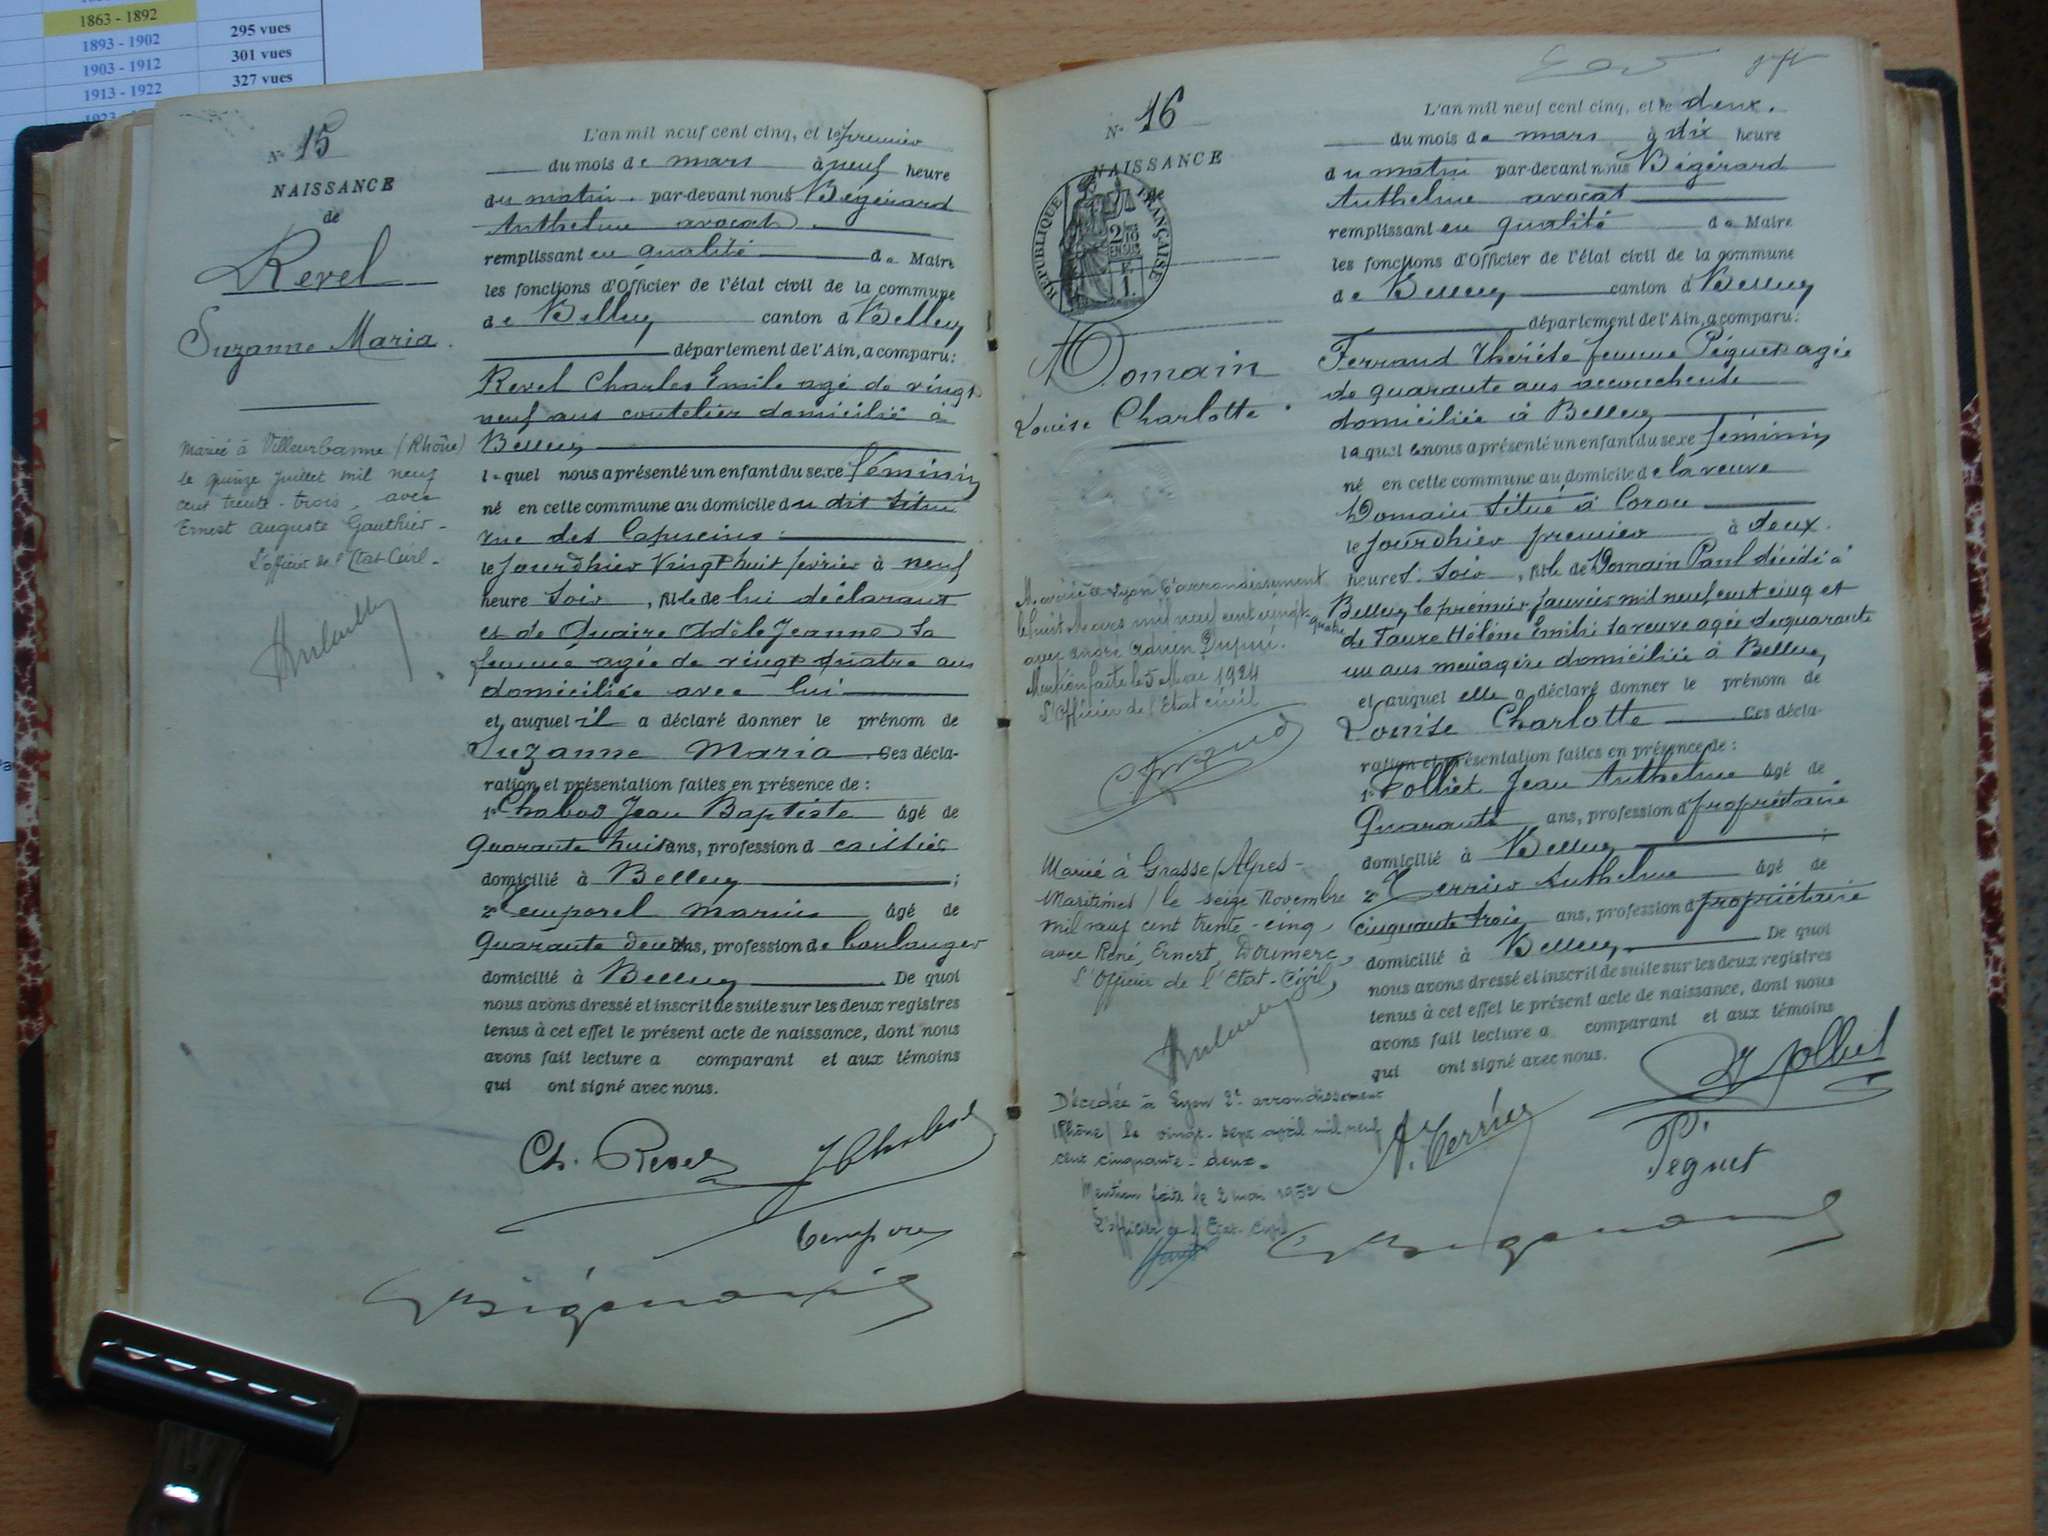 1863 - 1892
1893 - 1902 295 vues
1903 - 1912 301 vues
1913 - 1922 327 vues
N° 15
NAISSANCE
de
Revel
Suzanne Maria.
Mariée à Villeurbanne (Rhône)
le quinze juillet mil neuf
cent trente-trois, avec
Ernest Auguste Gauthier -
L'officier de l'Etat-Civil -
L'an mil neuf cent cinq, et le premier
du mois de mars à neuf heure
du matin. par-devant nous Bégérard
Anthelme avocat
remplissant en qualité de Maire
les fonctions d'Officier de l'état civil de la commune
de Belley canton d Belley
département de l'Ain, a comparu:
Revel Charles Emile agé de vingt
neuf ans coutelier domicilié à
Belley
lequel nous a présenté un enfant du sexe féminin
né en cette commune au domicile du dit situé
rue des Capucins
le jourdhier vingt huit février à neuf
heure soir, fille de lui déclarant
et de Quaire Adèle Jeanne sa
femme agée de vingt quatre ans
domiciliée avec lui
et auquel il a déclaré donner le prénom de
Suzanne Maria Ces décla-
ration et présentation faites en présence de :
1° Chabod Jean Baptiste âgé de
Quarante huit ans, profession d
domicilié à Belley ;
2° Temporel Marius âgé de
Quarante deux ans, profession de boulanger
domicilié à Belley. De quoi
nous avons dressé et inscrit de suite sur les deux registres
tenus à cet effet le présent acte de naissance, dont nous
avons fait lecture a comparant et aux témoins
qui ont signé avec nous.
Ch. Revel J Chabod
Temporel
N° 16
NAISSANCE
de
REPUBLIQUE FRANÇAISE
Domain
Louise Charlotte.
Mariée à Lyon arrondissement
le huit Mars mil neuf cent vingt-quatre
avec André Adrien
Mention faite le 5 Mai 1924
L'Officier de l'Etat civil
Mariée à Grasse (Alpes-
Maritimes) le seize Novembre
mil neuf cent trente-cinq,
avec René, Ernest, Doumerc,
L'Officier de l'Etat-Civil,
Décédée à Lyon 2e arrondissement
(Rhône) le vingt-sept avril mil neuf
cent cinquante-deux.
Mention faite le 2 mai 1952
L'officier de l'Etat-Civil
L'an mil neuf cent cinq, et le deux.
du mois de mars à dix heure
du matin par-devant nous Bégérard
Anthelme avocat
remplissant en qualité de Maire
les fonctions d'Officier de l'état civil de la commune
de Belley canton d Belley
département de l'Ain, a comparu:
Ferrand Thérèse femme Péguet agée
de quarante ans accoucheuse
domiciliée à Belley
laquelle nous a présenté un enfant du sexe féminin
né en cette commune au domicile de la veuve
Domain situé à Coron
le jourdhier premier à deux
heures soir, fille de Domain Paul décédé à
Belley le premier janvier mil neuf cent cinq et
de Hélène Emilie sa veuve agée de quarante
un ans ménagère domiciliée à Belley
et auquel elle a déclaré donner le prénom de
Louise Charlotte Ces décla-
ration et présentation faites en présence de :
1° Folliet Jean Anthelme âgé de
Quarante ans, profession d propriétaire
domicilié à Belley ;
2° Terrier Anthelme âgé de
cinquante trois ans, profession d propriétaire
domicilié à Belley De quoi
nous avons dressé et inscrit de suite sur les deux registres
tenus à cet effet le présent acte de naissance, dont nous
avons fait lecture a comparant et aux témoins
qui ont signé avec nous.
J Folliet
A. Terrier
Péguet